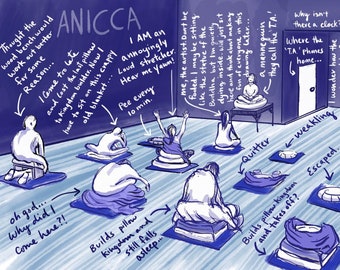 ANICCA
Thought the
wood bench would
work out better
for some
Reason..
Came too late
and lost the
a kingdom builder. Now I
have to sit on this crappy
old blanket...
I AM an
annoyingly
Loud stretcher.
Hear me yawn!
Pee every
10 min.
me, the artist. Don't be
fooled. I may be sitting
like the statue of the
Buddha but I'm properly
dying inside. Will just sit
here and think about making
fun of everyone in this
drawing later.
a mannequin
they call the 'TA'
Why isn't
there a clock?
Where the
'TA' phones
home...
I wonder how the
oh god...
Why did I
come here?!
Builds pillow
Kingdom and
still falls
asleep
Quitter
Weakling
Escaped
Builds pillow kingdom
and takes off?